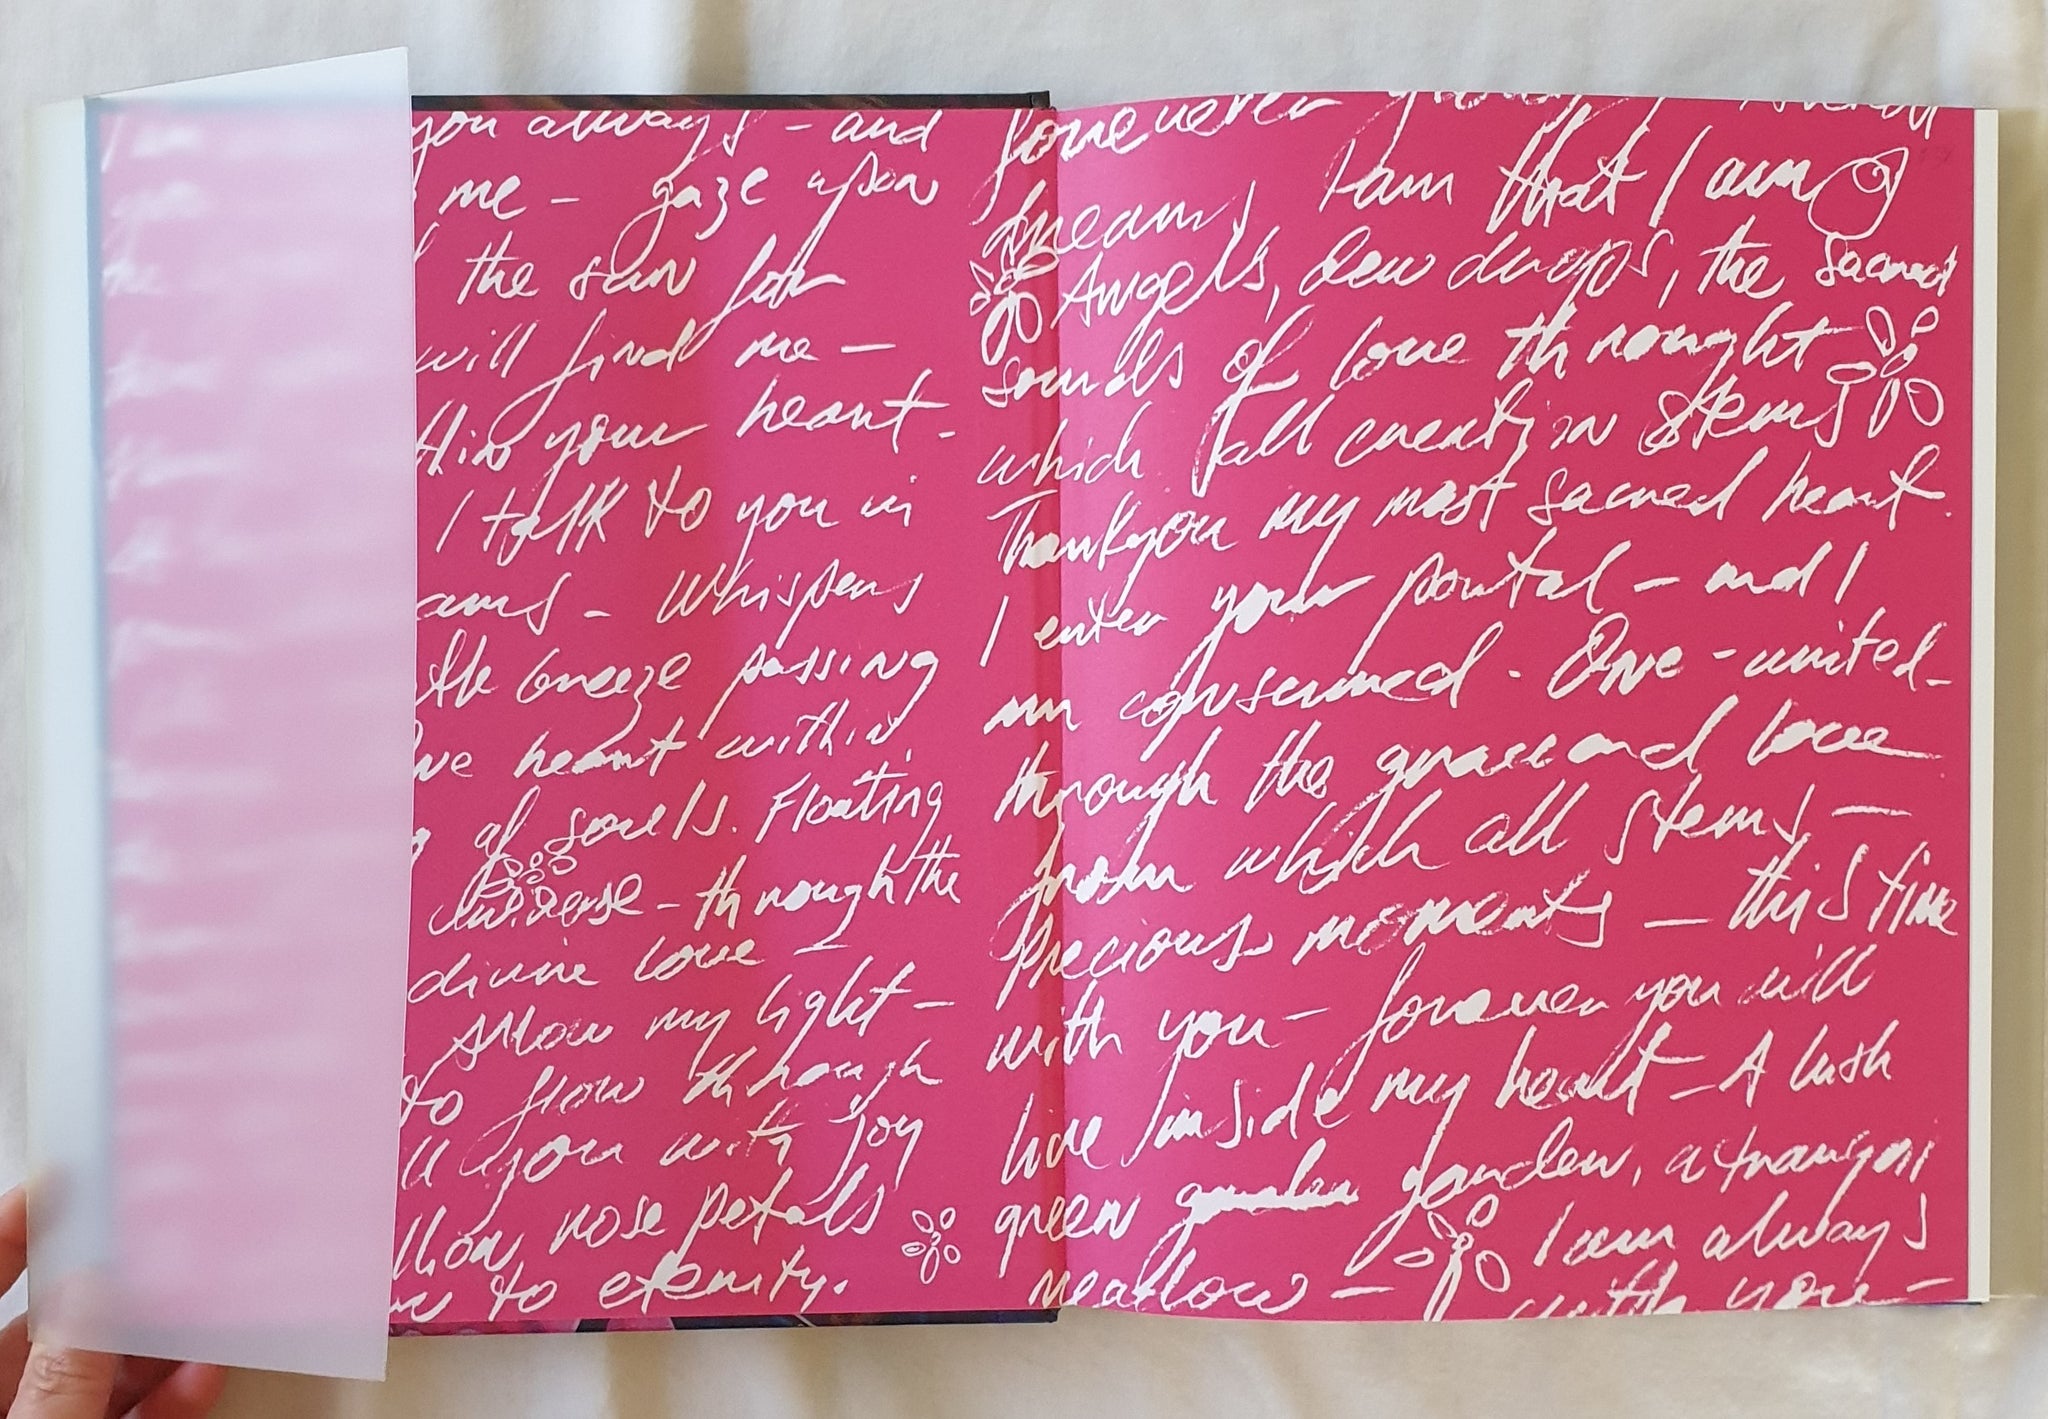 you always - and
me - gaze upon
the sun for
will find me -
your heart -
I talk to you in
- Whispers
the breeze passing
heart within
of souls. Floating
universe - through the
divine love -
Allow my light -
to flow through
you with joy
rose petals
to eternity.
forever
dreams I am that I am
Angels, dew drops, the sacred
sounds of love throught
which all creation stems
Thankyou my most sacred heart.
I enter your portal - and I
am consumed - One - united -
through the grace and love
from which all stems -
Precious moments - this time
with you - forever you will
live inside my heart - A lush
green garden, a tranquil
meadow - I am always
with you -